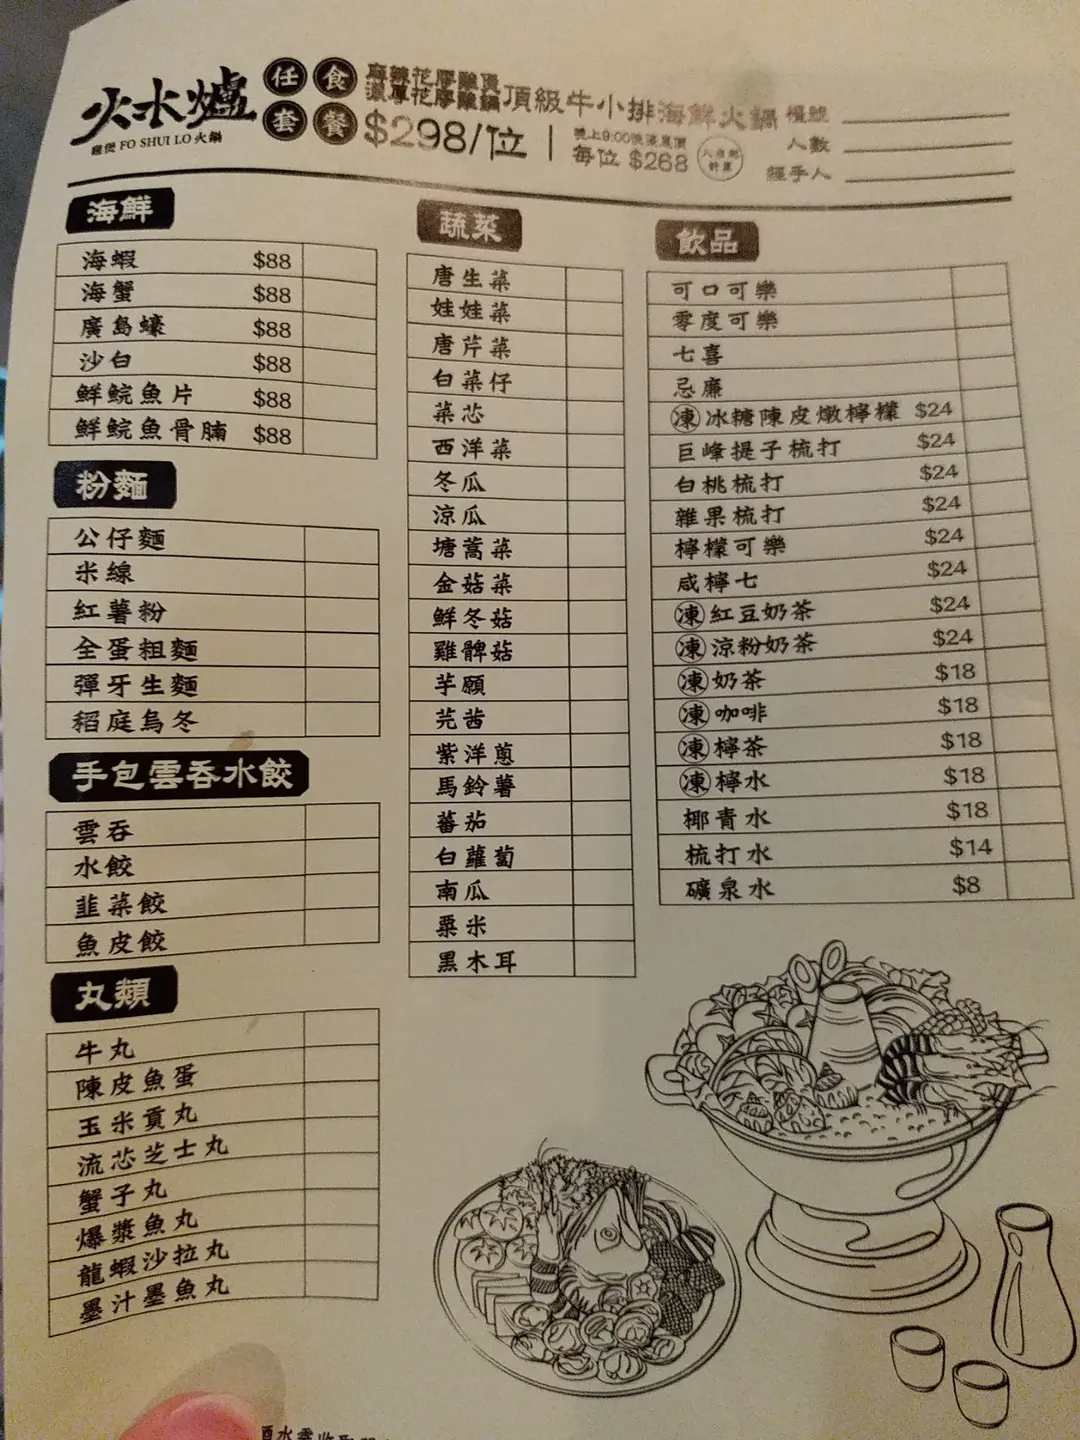 火水爐
雞煲 FO SHUI LO 火鍋
任食套餐
麻辣花膠雞煲
濃厚花膠雞鍋
頂級牛小排海鮮火鍋
$298/位
晚上9:00後優惠價
每位 $268
檯號
人數
經手人
海鮮
海蝦 $88
海蟹 $88
廣島蠔 $88
沙白 $88
鮮鯇魚片 $88
鮮鯇魚骨腩 $88
粉麵
公仔麵
米線
紅薯粉
全蛋粗麵
彈牙生麵
稻庭烏冬
手包雲吞水餃
雲吞
水餃
韭菜餃
魚皮餃
丸類
牛丸
陳皮魚蛋
玉米貢丸
流芯芝士丸
蟹子丸
爆漿魚丸
龍蝦沙拉丸
墨汁墨魚丸
蔬菜
唐生菜
娃娃菜
唐芹菜
白菜仔
菜芯
西洋菜
冬瓜
涼瓜
塘蒿菜
金菇菜
鮮冬菇
雞髀菇
芋頭
芫茜
紫洋蔥
馬鈴薯
蕃茄
白蘿蔔
南瓜
粟米
黑木耳
飲品
可口可樂
零度可樂
七喜
忌廉
凍冰糖陳皮燉檸檬 $24
巨峰提子梳打 $24
白桃梳打 $24
雜果梳打 $24
檸檬可樂 $24
咸檸七 $24
凍紅豆奶茶 $24
凍涼粉奶茶 $24
凍奶茶 $18
凍咖啡 $18
凍檸茶 $18
凍檸水 $18
椰青水 $18
梳打水 $14
礦泉水 $8